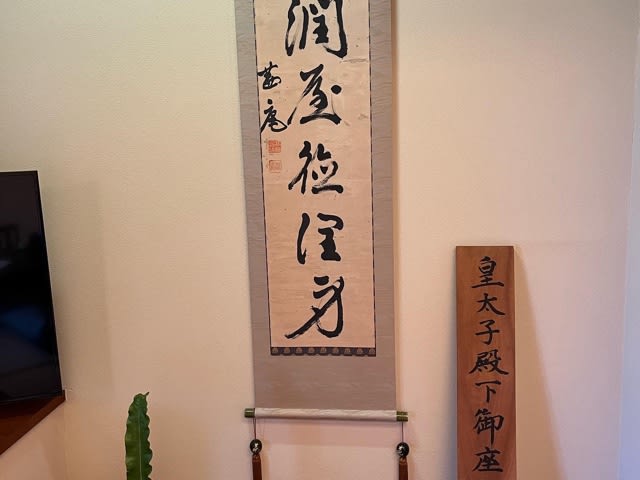 潤屋徳潤身
皇太子殿下御座